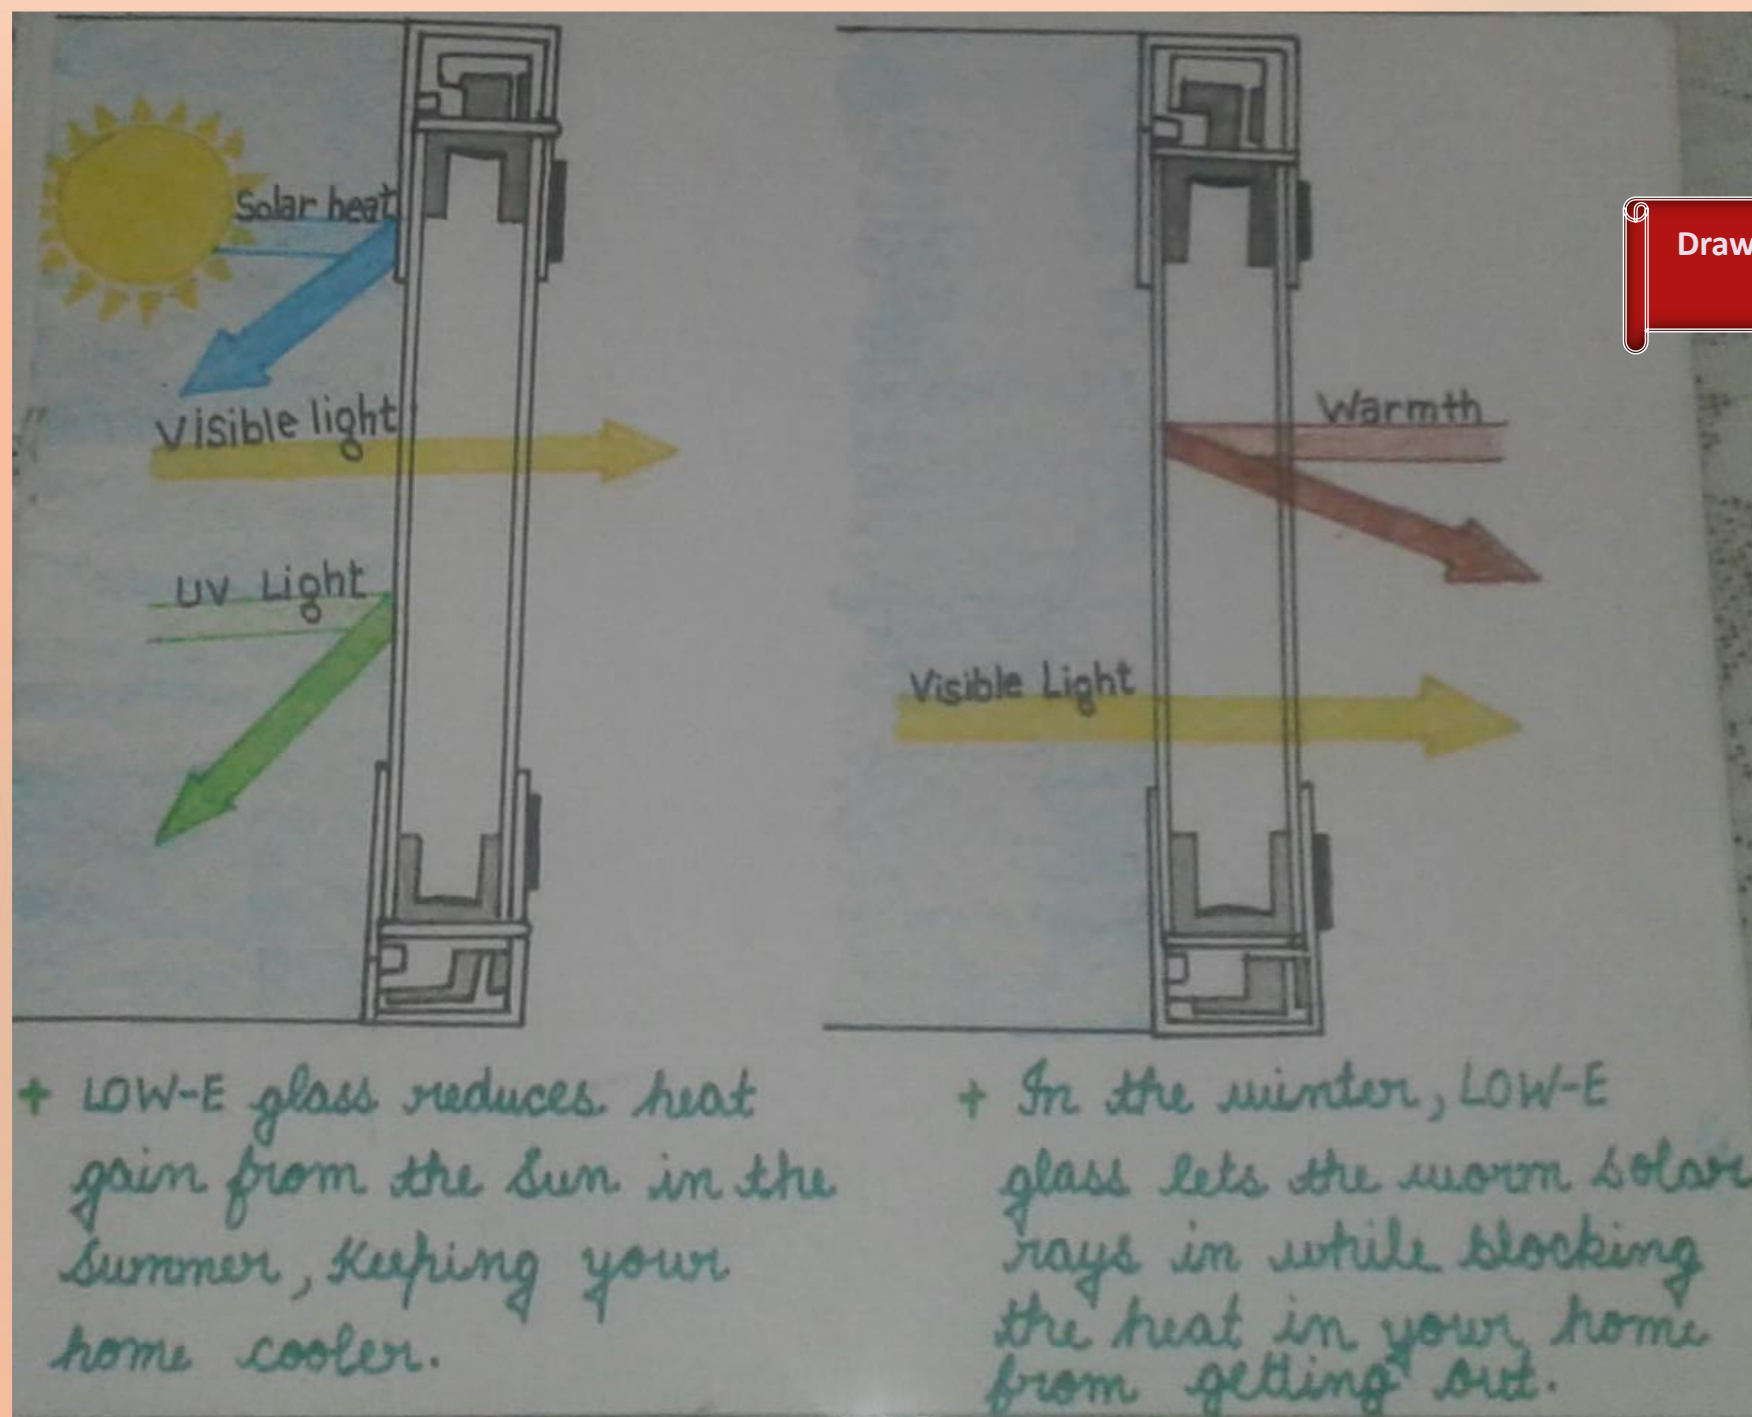 Solar heat
Visible light
UV Light
+ LOW-E glass reduces heat
gain from the Sun in the
Summer, Keeping your
home cooler.
Draw
Warmth
Visible Light
+ In the winter, LOW-E
glass lets the worm solar
rays in while blocking
the heat in your home
from getting out.